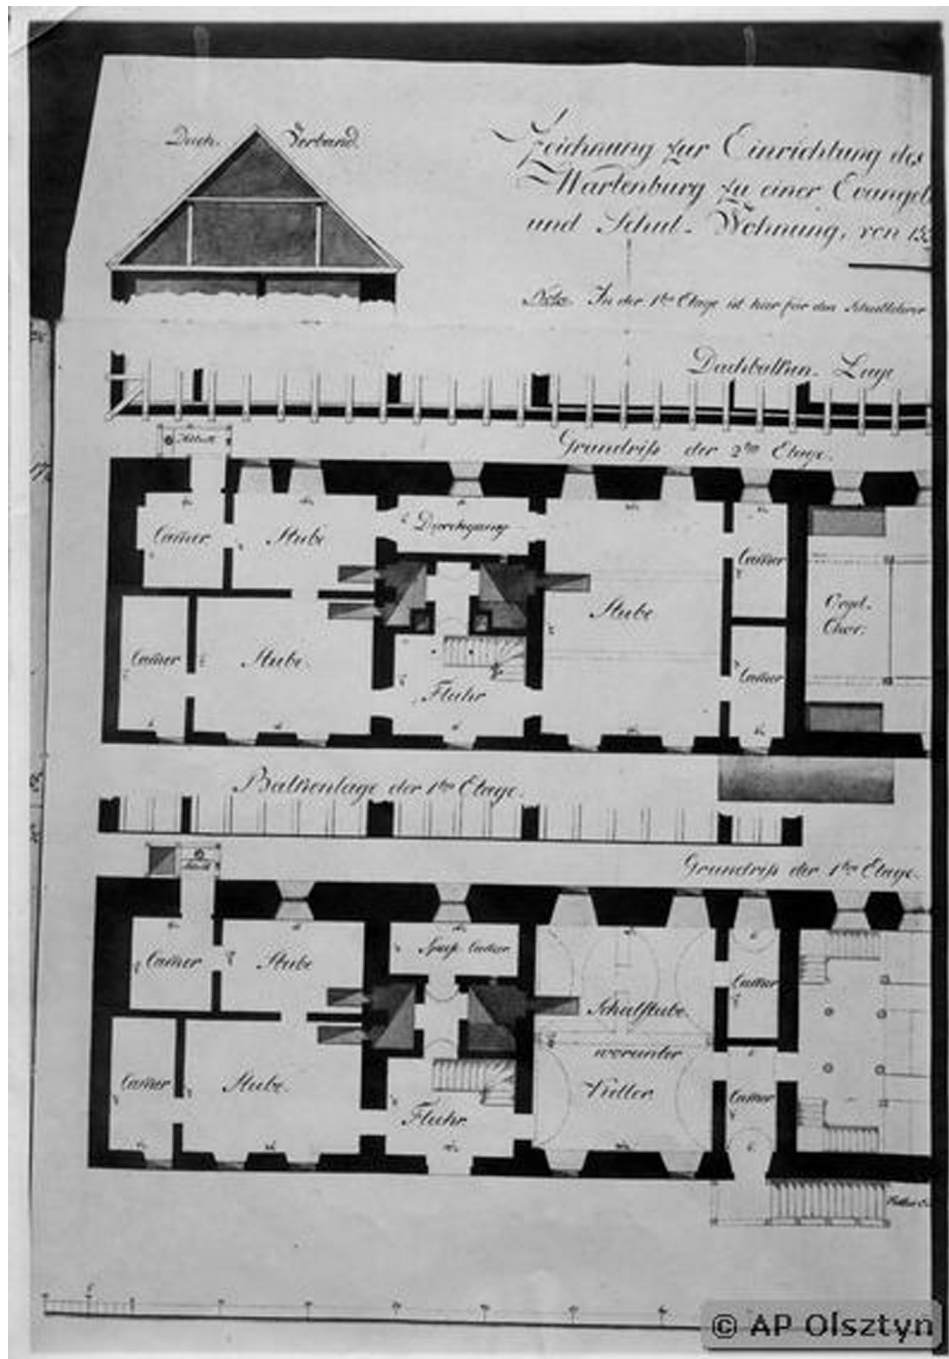 Dach- Verband.
Zeichnung zur Einrichtung des
Wartenburg zu einer Evangel
und Schul- Wohnung, von
Nota. In der 1ten Etage ist hier für den Schullehrer
Dachbalken- Lage
Abtritt
Grundriß der 2ten Etage.
Cam̅er Stube Durchgang Cam̅er
Stube Orgel-
Chor.
Cam̅er Stube. Fluhr Cam̅er
Balkenlage der 1ten Etage.
Grundriß der 1ten Etage.
Cam̅er Stube Speise Cam̅er Cam̅er
Schulstube.
worunter
Cam̅er Stube. Fluhr Keller Cam̅er
© AP Olsztyn